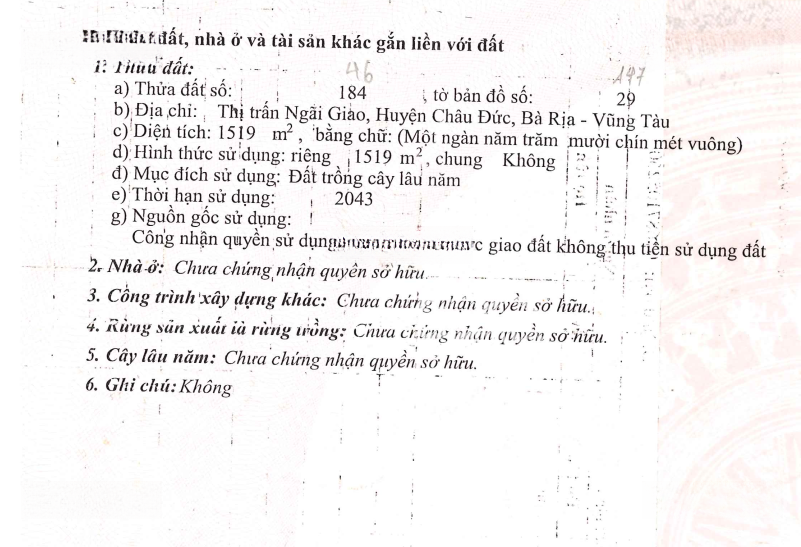 đất, nhà ở và tài sản khác gắn liền với đất
46
197
1. Thửa đất:
a) Thửa đất số: 184 , tờ bản đồ số: 29
b) Địa chỉ: Thị trấn Ngãi Giao, Huyện Châu Đức, Bà Rịa - Vũng Tàu
c) Diện tích: 1519 m², bằng chữ: (Một ngàn năm trăm mười chín mét vuông)
d) Hình thức sử dụng: riêng 1519 m², chung Không
đ) Mục đích sử dụng: Đất trồng cây lâu năm
e) Thời hạn sử dụng: 2043
g) Nguồn gốc sử dụng:
Công nhận quyền sử dụng giao đất không thu tiền sử dụng đất
2. Nhà ở: Chưa chứng nhận quyền sở hữu.
3. Công trình xây dựng khác: Chưa chứng nhận quyền sở hữu.
4. Rừng sản xuất là rừng trồng: Chưa chứng nhận quyền sở hữu.
5. Cây lâu năm: Chưa chứng nhận quyền sở hữu.
6. Ghi chú: Không